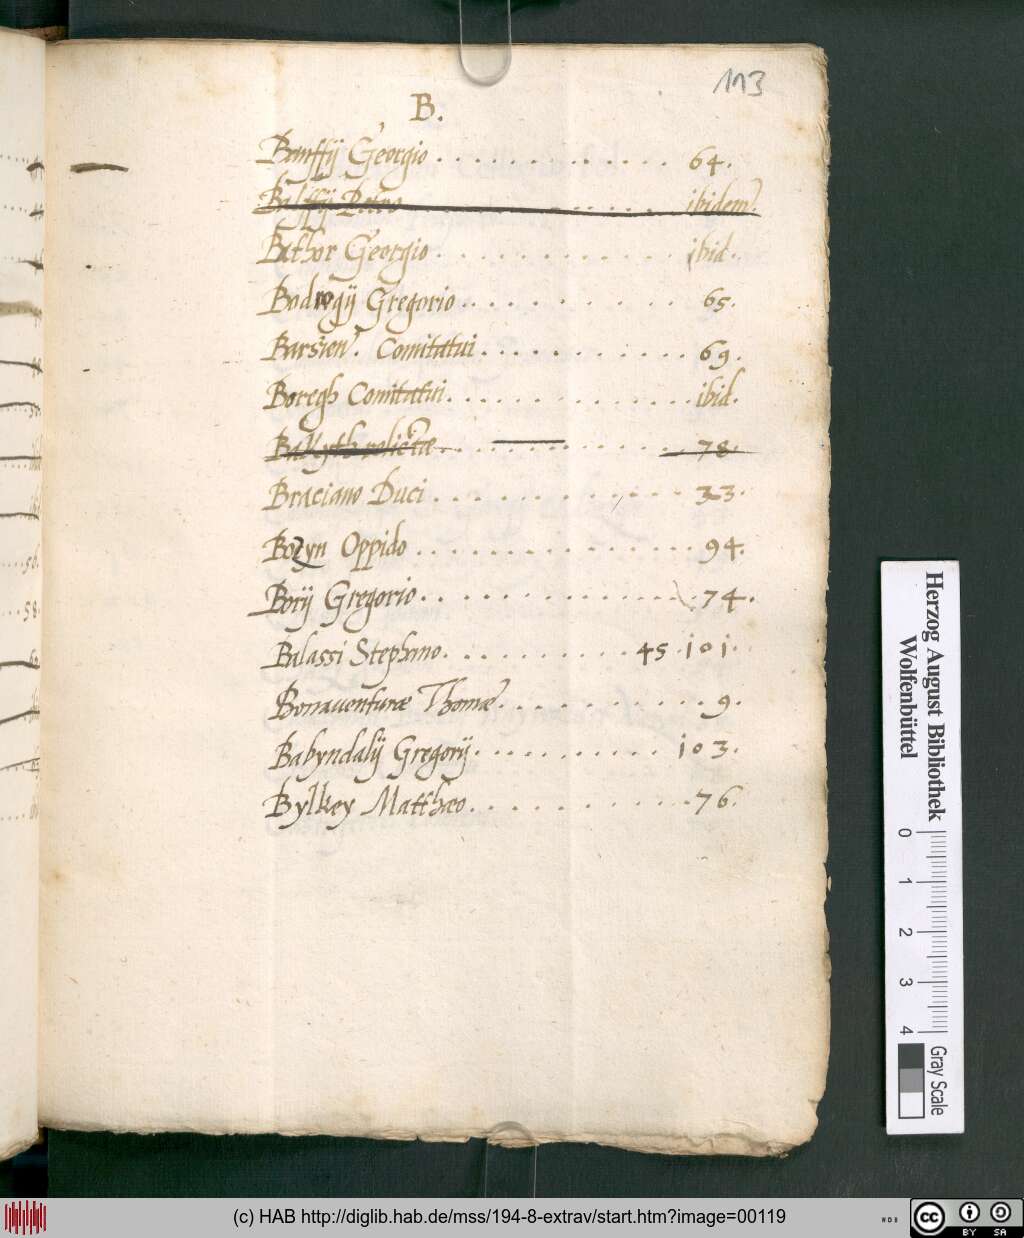 113
B.
Banffÿ Georgio . . . . . . . . . . . . 64.
Balffÿ Petro . . . . . . . . . . . . ibidem.
Bathor Georgio . . . . . . . . . . . . ibid.
Bodrogÿ Gregorio . . . . . . . . . . . 65.
Barsien. Comitatui . . . . . . . . . . 69.
Beregh Comitatui . . . . . . . . . . . ibid.
Bakyth relictæ . . . . . . . . . . . . 78.
Braciano Duci . . . . . . . . . . . . 33.
Bozyn Oppido . . . . . . . . . . . . . 94.
Borÿ Gregorio . . . . . . . . . . . . 74.
Balassi Stephano . . . . . . . . . 45 . 101 .
Bonauenturæ Thomæ . . . . . . . . . . 9.
Babyndalÿ Gregorÿ . . . . . . . . . . 103.
Bylkey Matthæo . . . . . . . . . . . . 76.
50.
58.
Herzog August Bibliothek
Wolfenbüttel
0 1 2 3 4
Gray Scale
(c) HAB http://diglib.hab.de/mss/194-8-extrav/start.htm?image=00119
WDB
cc BY SA